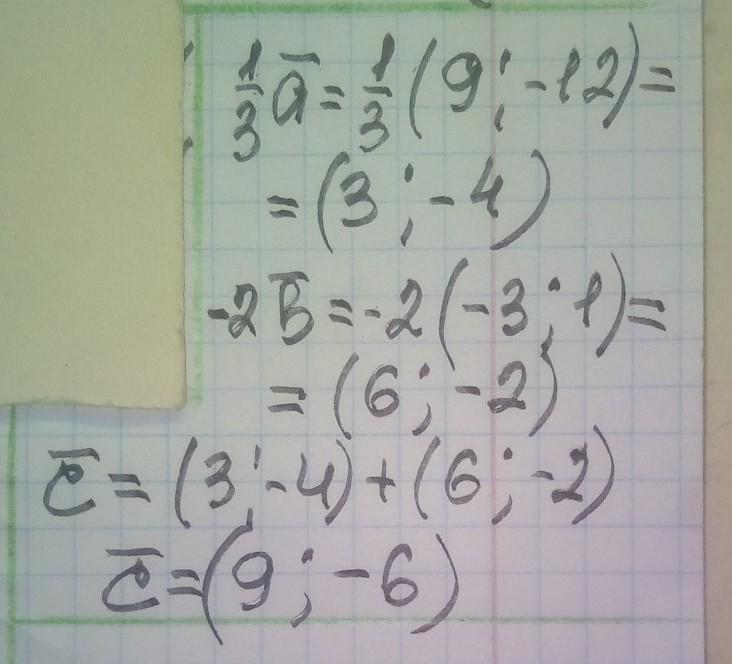 1/3 a̅ = 1/3 (9; -12) =
= (3; -4)
-2 b̅ = -2 (-3; 1) =
= (6; -2)
c̅ = (3; -4) + (6; -2)
c̅ = (9; -6)